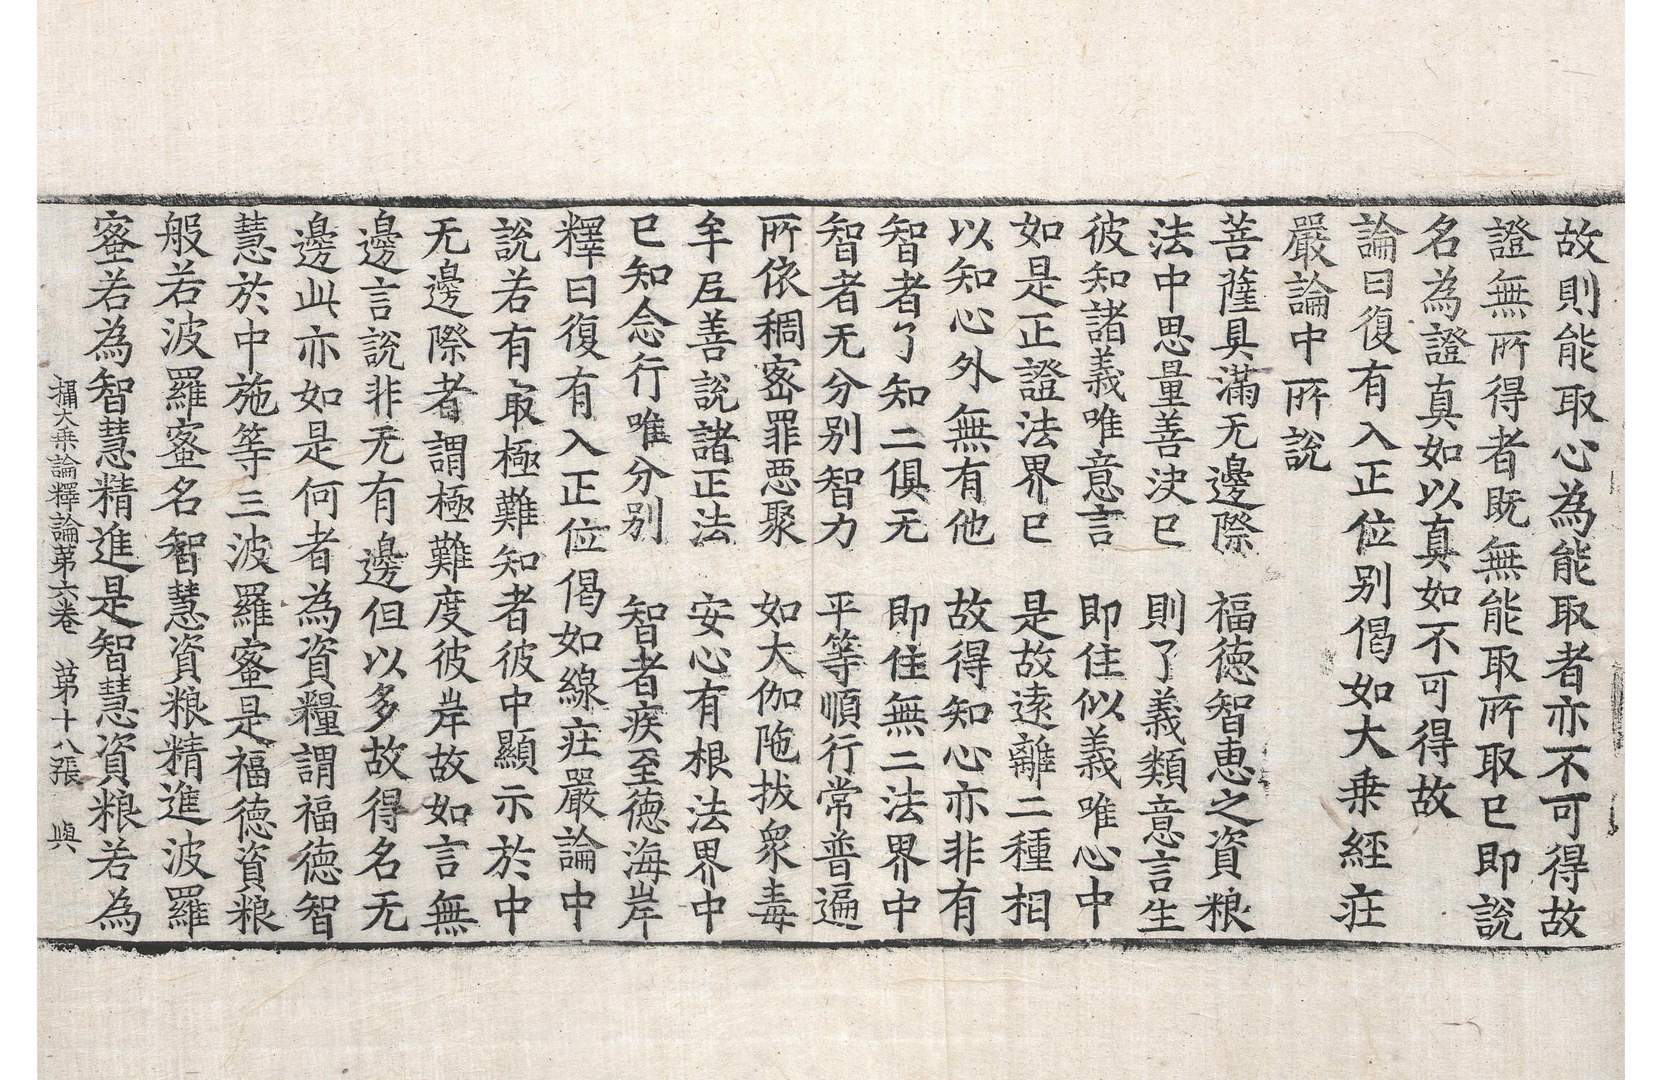 故則能取心為能取者亦不可得故
證無所得者既無能取所取已即說
名為證真如以真如不可得故
論曰復有入正位别偈如大乗經荘
嚴論中所説
菩薩具滿无邊際　福德智恵之資粮
法中思量善决已　則了義類意言生
彼知諸義唯意言　即住似義唯心中
如是正證法界已　是故遠離二種相
以知心外無有他　故得知心亦非有
智者了知二俱无　即住無二法界中
智者无分别智力　平等順行常普遍
所依稠宻罪惡聚　如大伽陁拔衆毒
牟尼善說諸正法　安心有根法界中
已知念行唯分别　智者疾至德海岸
釋曰復有入正位偈如線荘嚴論中
說若有最極難知者彼中顯示於中
无邊際者謂極難度彼岸故如言無
邊言說非无有邊但以多故得名无
邊此亦如是何者為資糧謂福德智
慧於中施等三波羅蜜是福德資粮
般若波羅蜜名智慧資粮精進波羅
蜜若為智慧精進是智慧資粮若為
攝大乗論釋論第六卷　第十八張　與